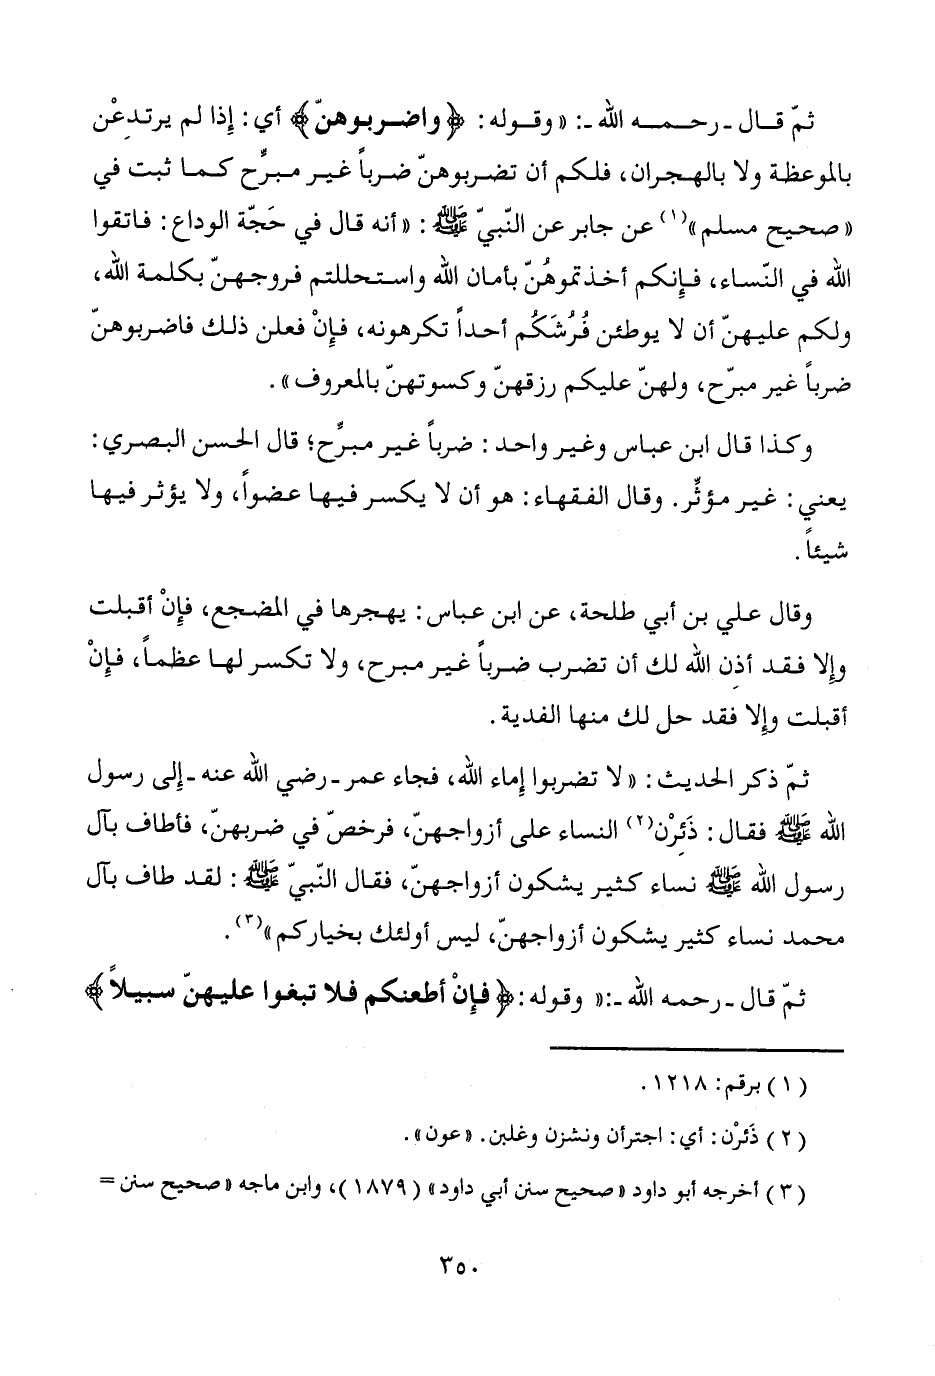 ثمّ قال ـ رحمه الله ـ: «وقوله: ﴿واضربوهنّ﴾ أي: إذا لم يرتدعْن
بالموعظة ولا بالهجران، فلكم أن تضربوهنّ ضرباً غير مبرِّح كما ثبت في
«صحيح مسلم»(١) عن جابر عن النّبيّ ﷺ: «أنه قال في حَجّة الوداع: فاتقوا
الله في النّساء، فإنكم أخذتموهُنّ بأمان الله واستحللتم فروجهنّ بكلمة الله،
ولكم عليهنّ أن لا يوطئن فُرُشَكُم أحداً تكرهونه، فإنْ فعلن ذلك فاضربوهنّ
ضرباً غير مبرّح، ولهنّ عليكم رزقهنّ وكسوتهنّ بالمعروف».
وكذا قال ابن عباس وغير واحد: ضرباً غير مبرِّح؛ قال الحسن البصري:
يعني: غير مؤثِّر. وقال الفقهاء: هو أن لا يكسر فيها عضواً، ولا يؤثر فيها
شيئاً.
وقال علي بن أبي طلحة، عن ابن عباس: يهجرها في المضجع، فإنْ أقبلت
وإلا فقد أذن الله لك أن تضرب ضرباً غير مبرح، ولا تكسر لها عظماً، فإنْ
أقبلت وإلا فقد حل لك منها الفدية.
ثمّ ذكر الحديث: «لا تضربوا إماء الله، فجاء عمر ـ رضي الله عنه ـ إلى رسول
الله ﷺ فقال: ذَئِرْن(٢) النساء على أزواجهنّ، فرخصّ في ضربهنّ، فأطاف بآل
رسول الله ﷺ نساء كثير يشكون أزواجهنّ، فقال النّبيّ ﷺ: لقد طاف بآل
محمد نساء كثير يشكون أزواجهنّ، ليس أولئك بخياركم»(٣).
ثمّ قال ـ رحمه الله ـ:« وقوله: ﴿فإنْ أطعنكم فلا تبغوا عليهنّ سبيلاً﴾
(١) برقم: ١٢١٨.
(٢) ذَئرْن: أي: اجترأن ونشزن وغلبن. «عون».
(٣) أخرجه أبو داود «صحيح سنن أبي داود» (١٨٧٩)، وابن ماجه «صحيح سنن =
٣٥٠